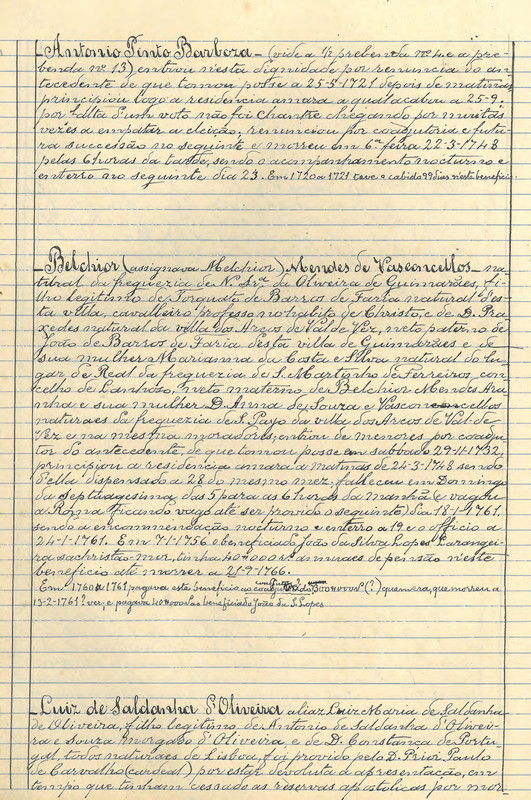 Antonio Pinto Barboza - (vide a ½ prebenda nº 4 e a pre-
benda nº 13) entrou n'esta dignidade por renuncia do an-
tecedente de que tomou posse a 25-5-1721 depois de matinas
principiou logo a residencia amara a qual acabou a 25-9.
por falta d'um voto não foi chantre chegando por muitas
vezes a empatar a eleição, renunciou por coadjutoria e futu-
ra successão no seguinte e morreu em 6ª feira 22-3-1748
pelas 6 horas da tarde, sendo o acompanhamento nocturno e
enterro no seguinte dia 23. Em 1720 a 1721 teve o cabido 99 dias n'este beneficio
Belchior (assignava Melchior) Mendes de Vasconcellos - na-
tural da freguezia de N. Srª da Oliveira de Guimarães, fi-
lho legitimo de Torquato de Barros de Faria natural d'es-
ta villa, cavalleiro professo no habito de Christo, e de D. Pra-
xedes natural da villa dos Arcos de Val de Vez, neto paterno de
João de Barros de Faria desta villa de Guimarães e de
sua mulher Marianna da Costa e Silva natural do lu-
gar de Real da freguezia de S. Martinho de Ferreiros, con-
celho de Lanhoso, neto materno de Belchior Mendes Ara-
nha e sua mulher D. Anna de Souza e Vasconcellos
naturaes da freguezia de S. Payo da villa dos Arcos de Val-de-
Vez e na mesma moradores, entrou de menores por coadju-
tor do antecedente, de que tomou posse em sabbado 29-11-1732,
principiou a residencia amara a matinas de 24-3-1748 sendo
d'ella dispensado a 28 do mesmo mez, falleceu em Domingo
da septuagesima das 5 para as 6 horas da manhã (e vagou
a Roma ficando vago até ser provido o seguinte) dia 18-1-1761.
sendo a encommendação nocturno e enterro a 19 e o officio a
24-1-1761. Em 7-1-1756 o beneficiado João da Silva Lopes Larangei-
ra sachristão-mor, tinha 40#000 rs annuaes de pensão n'este
beneficio até morrer a 21-9-1766.
Em 1760 a 1761 pagava este beneficio ao coadjutor 300#000 (?) quem era, que morreu a
13-2-1761? ver, e pagava 40#000 ao beneficiado João da S. Lopes
Luiz de Saldanha d'Oliveira aliaz Luiz Maria de Saldanha
de Oliveira, filho legitimo de Antonio de Saldanha d'Olivei-
ra e Souza morgado d'Oliveira, e de D. Constança de Portu-
gal, todos naturaes de Lisboa, foi provido pelo D. Prior Paulo
de Carvalho (cardeal) por estar devoluta a apresentação, em
tempo que tinham cessado as reservas apostolicas por mor-